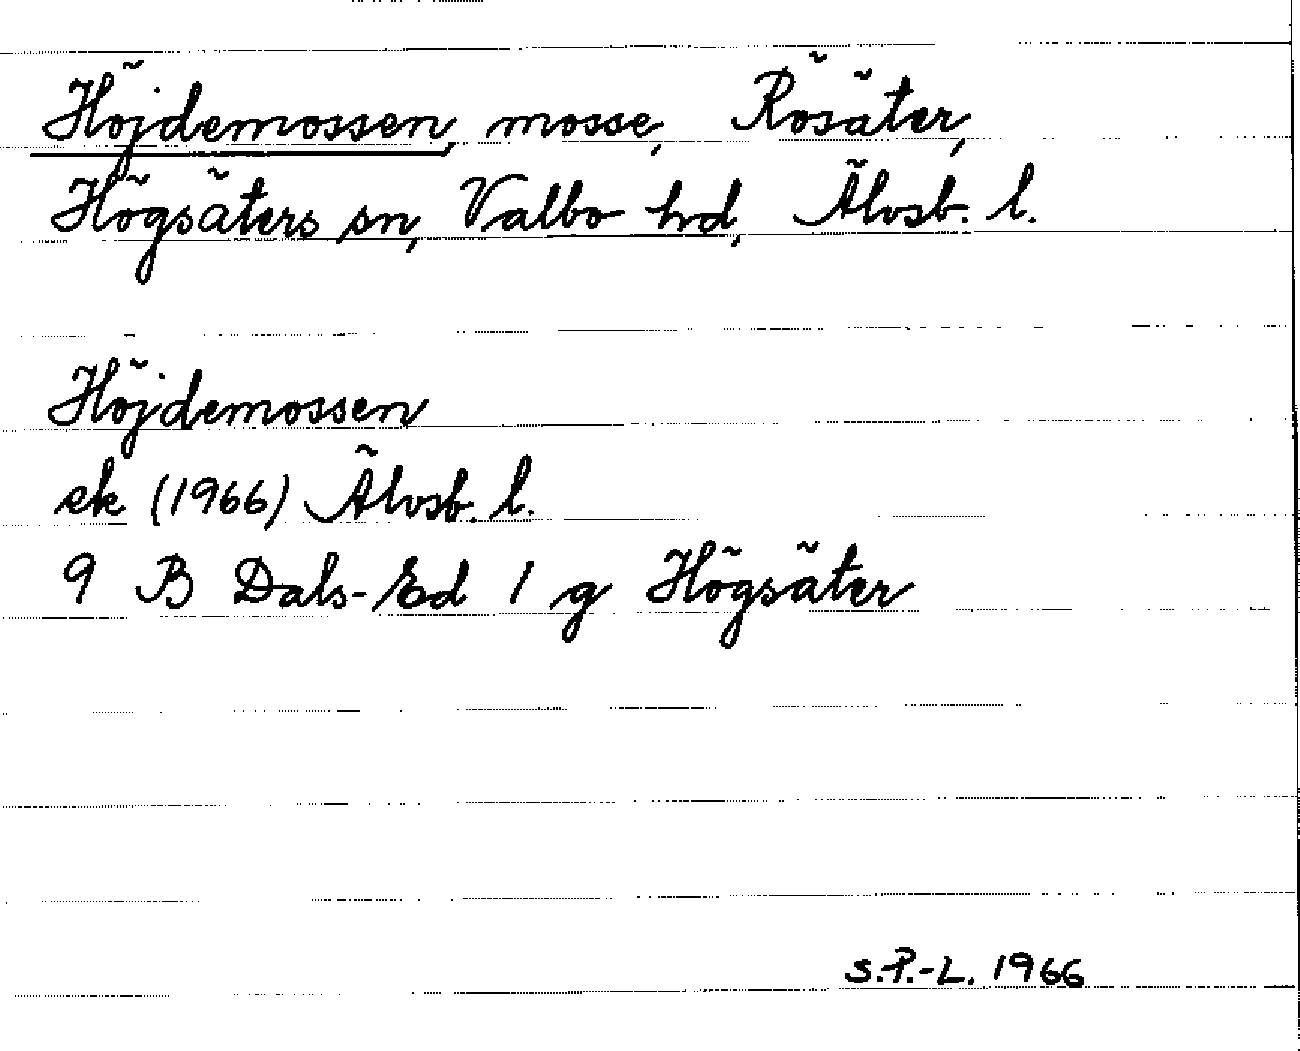 Höjdemossen, mosse, Rösäter,
Högsäters sn, Valbo hd, Älvsb. l.
Höjdemossen
ek (1966) Älvsb. l.
9 B Dals-Ed 1 g Högsäter
S.P.-L. 1966